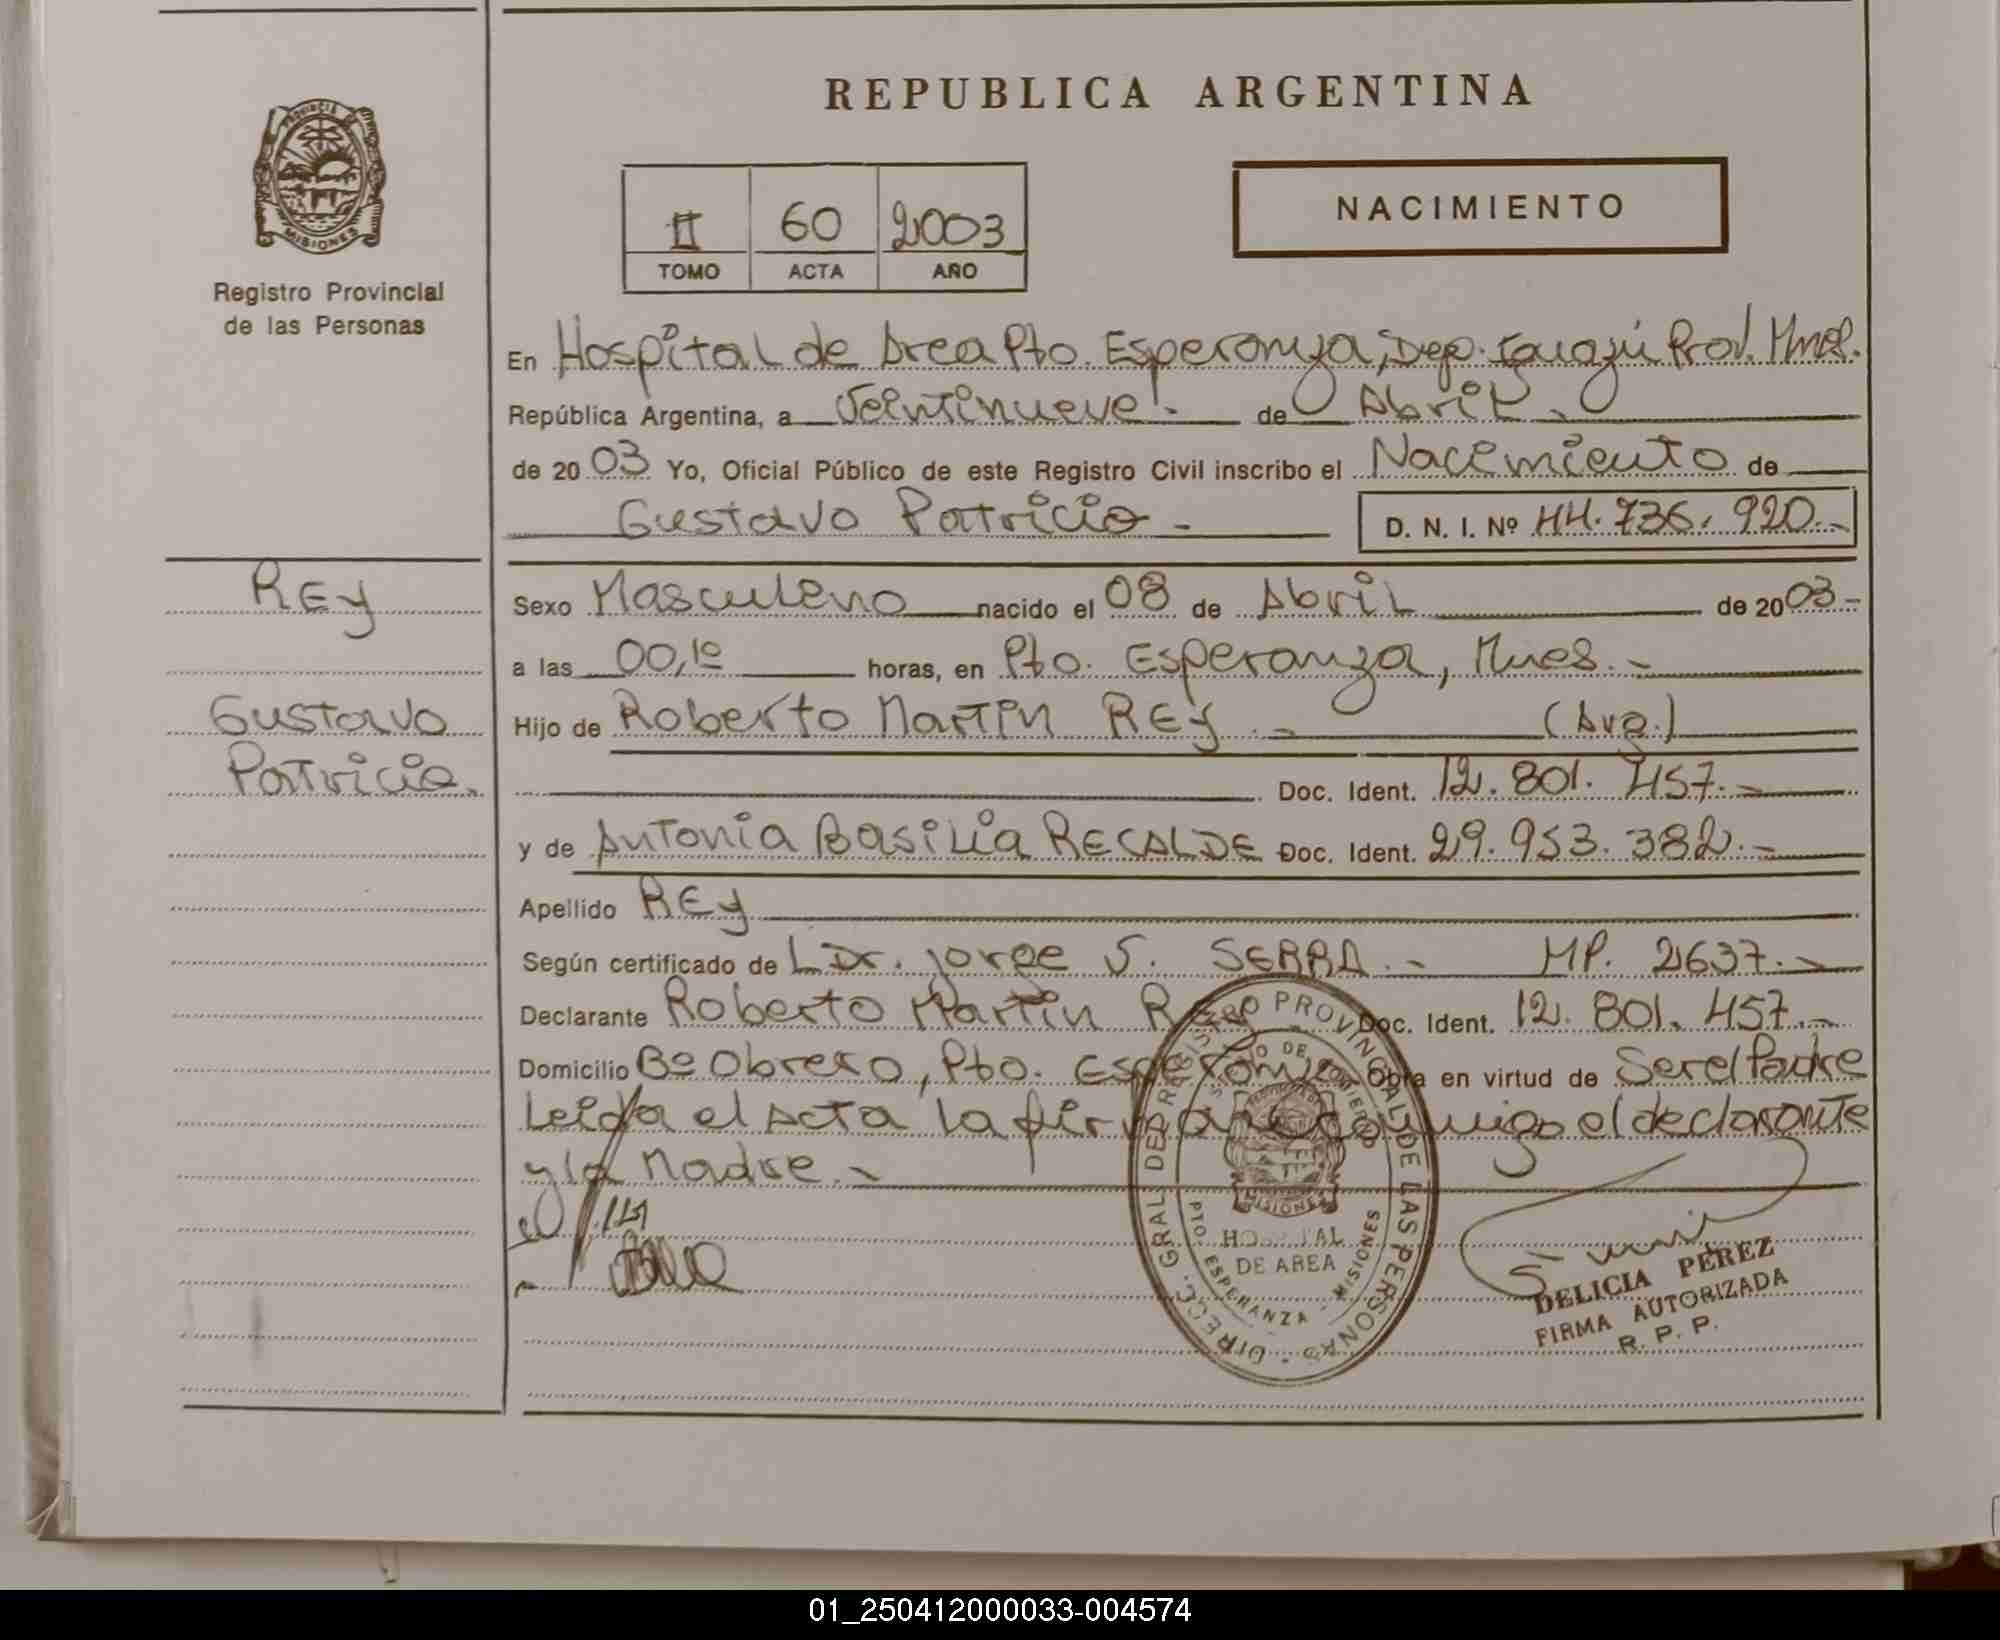 REPUBLICA ARGENTINA
PROVINCIA DE
MISIONES
Registro Provincial
de las Personas
II 60 2003
TOMO ACTA AÑO
NACIMIENTO
En Hospital de Area Pto. Esperanza, Dep. Iguazú Prov. Mnes.
República Argentina, a Veintinueve.- de Abril.
de 20 03 Yo, Oficial Público de este Registro Civil inscribo el Nacimiento de
Gustavo Patricio - D. N. I. Nº 44.736.920.-
REY
Gustavo
Patricio.
Sexo Masculino nacido el 08 de Abril de 20 03-
a las 00,10 horas, en Pto. Esperanza, Mnes.-
Hijo de Roberto Martin REY.- (Arg.)
Doc. Ident. 12.801.457.-
y de Antonia Basilia RECALDE Doc. Ident. 29.953.382.-
Apellido REY
Según certificado de L Dr. Jorge S. SERRA.- MP. 2637.-
Declarante Roberto Martin Rey Doc. Ident. 12.801.457.-
Domicilio Bº Obrero, Pto. Esperanza Obra en virtud de Ser el Padre
Leida el Acta la firman conmigo el declarante
y la Madre.-
DIRECC. GRAL DEL REGISTRO PROVINCIAL DE LAS PERSONAS
MISIONES
HOSPITAL
DE AREA
PTO. ESPERANZA - MISIONES
DELICIA PEREZ
FIRMA AUTORIZADA
R. P. P.
01_250412000033-004574